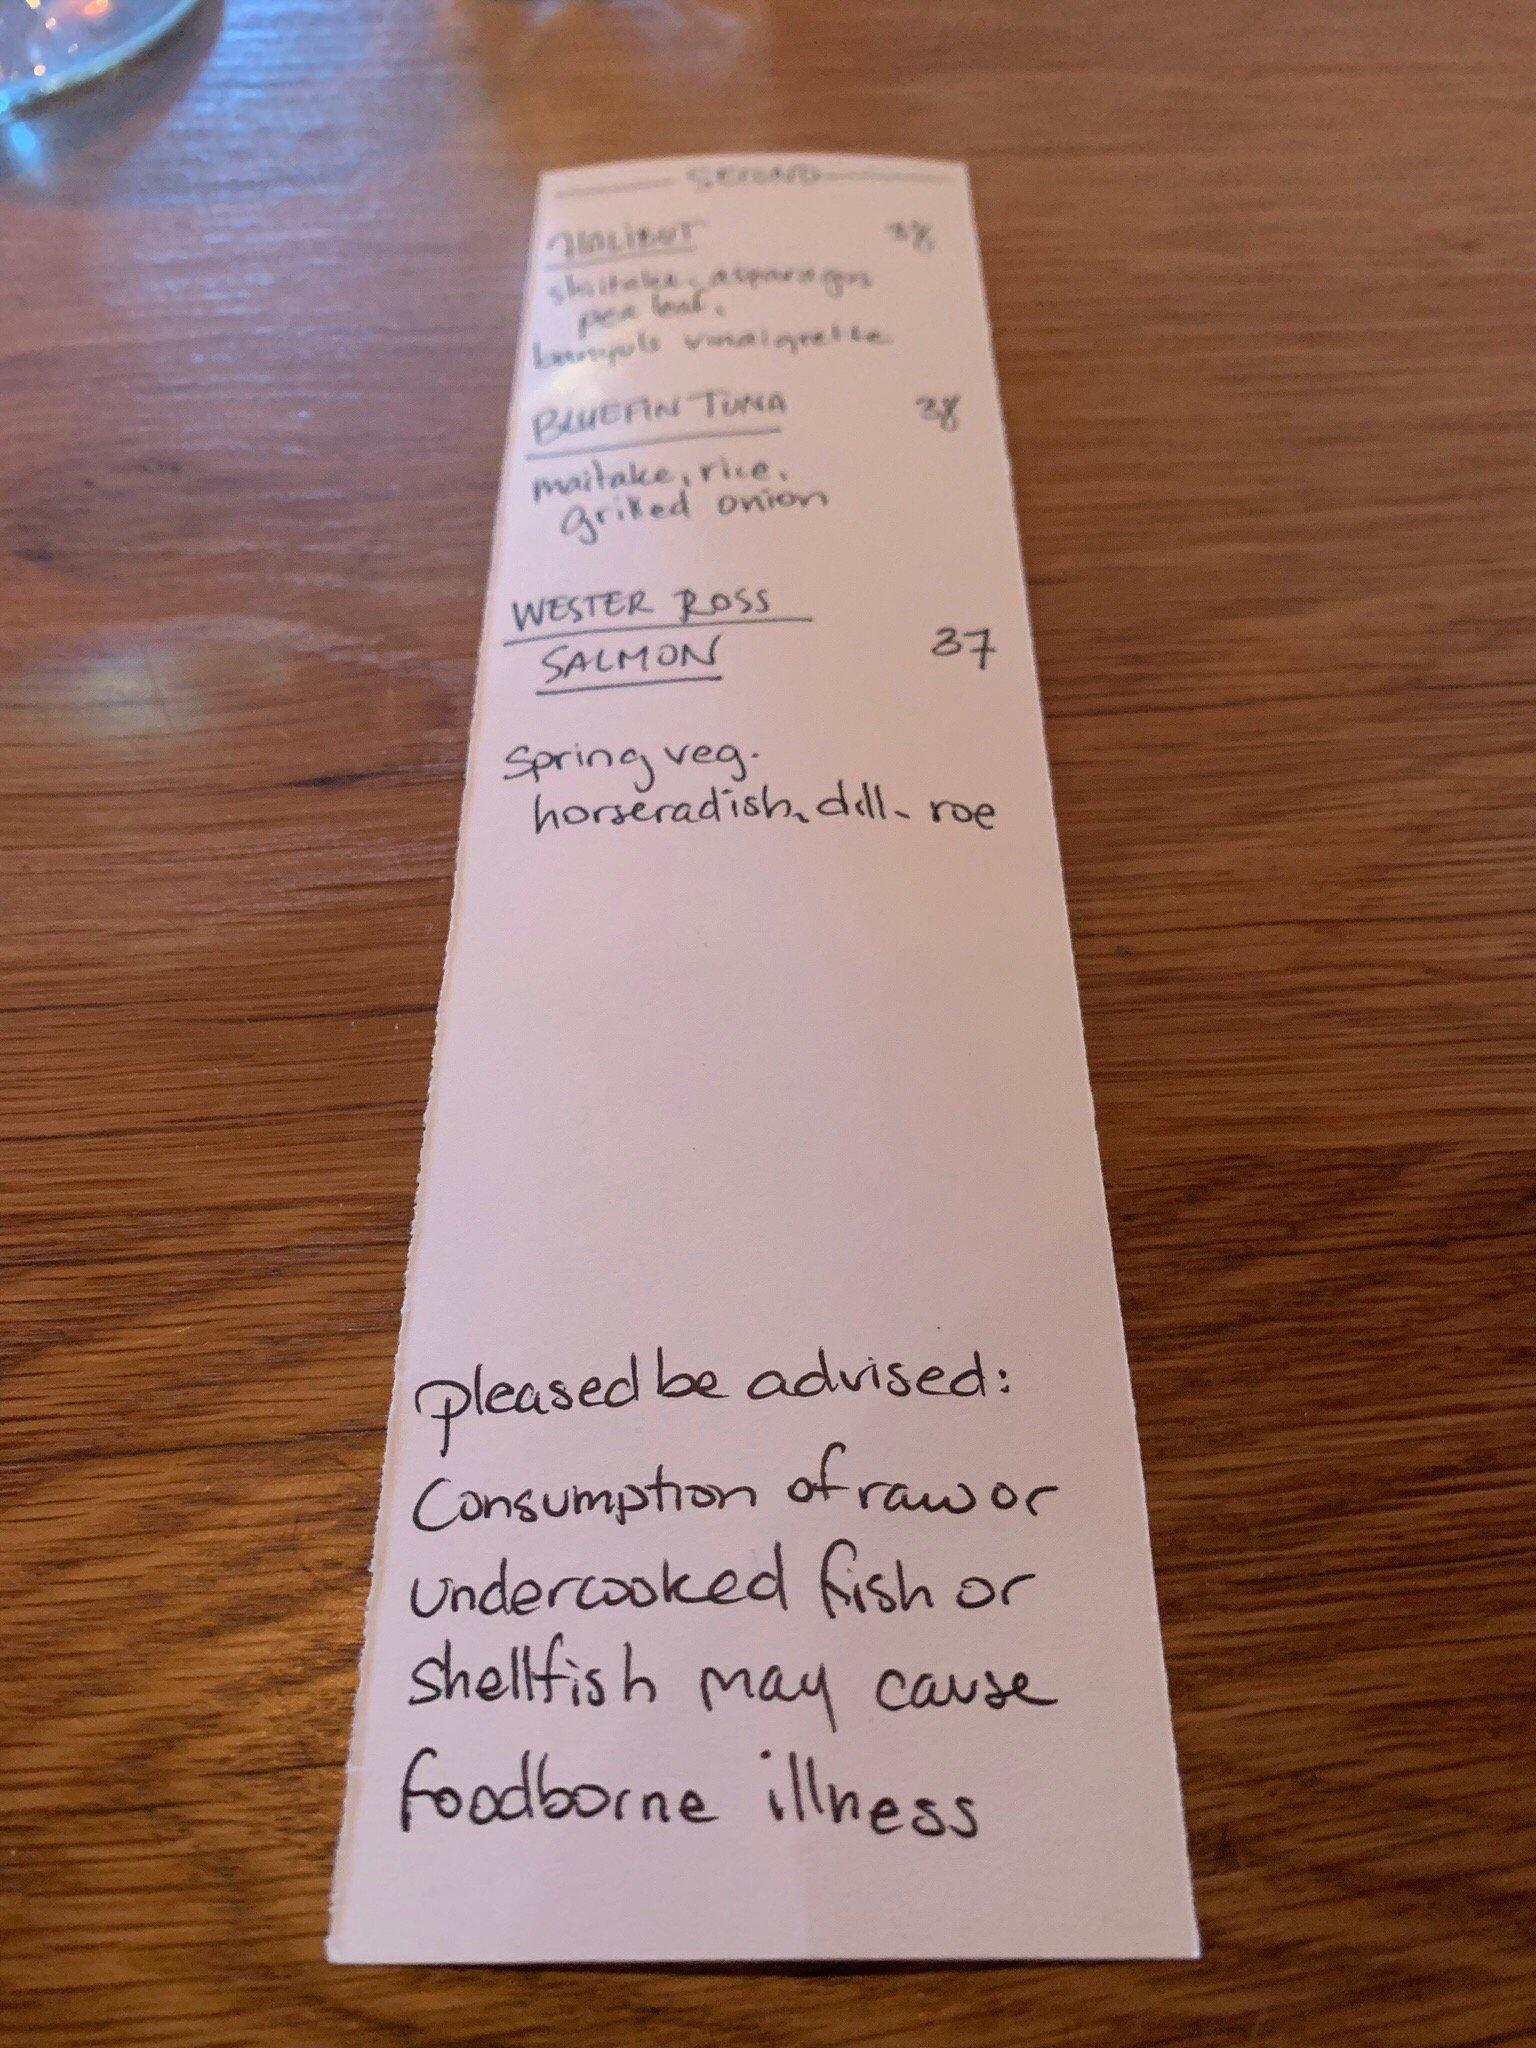 SECOND
HALIBUT 38
shiitake, asparagus
pea leaf,
banyuls vinaigrette
BLUEFIN TUNA 38
maitake, rice,
grilled onion
WESTER ROSS
SALMON 37
Spring veg.
horseradish, dill, roe
pleased be advised:
Consumption of raw or
undercooked fish or
shellfish may cause
foodborne illness